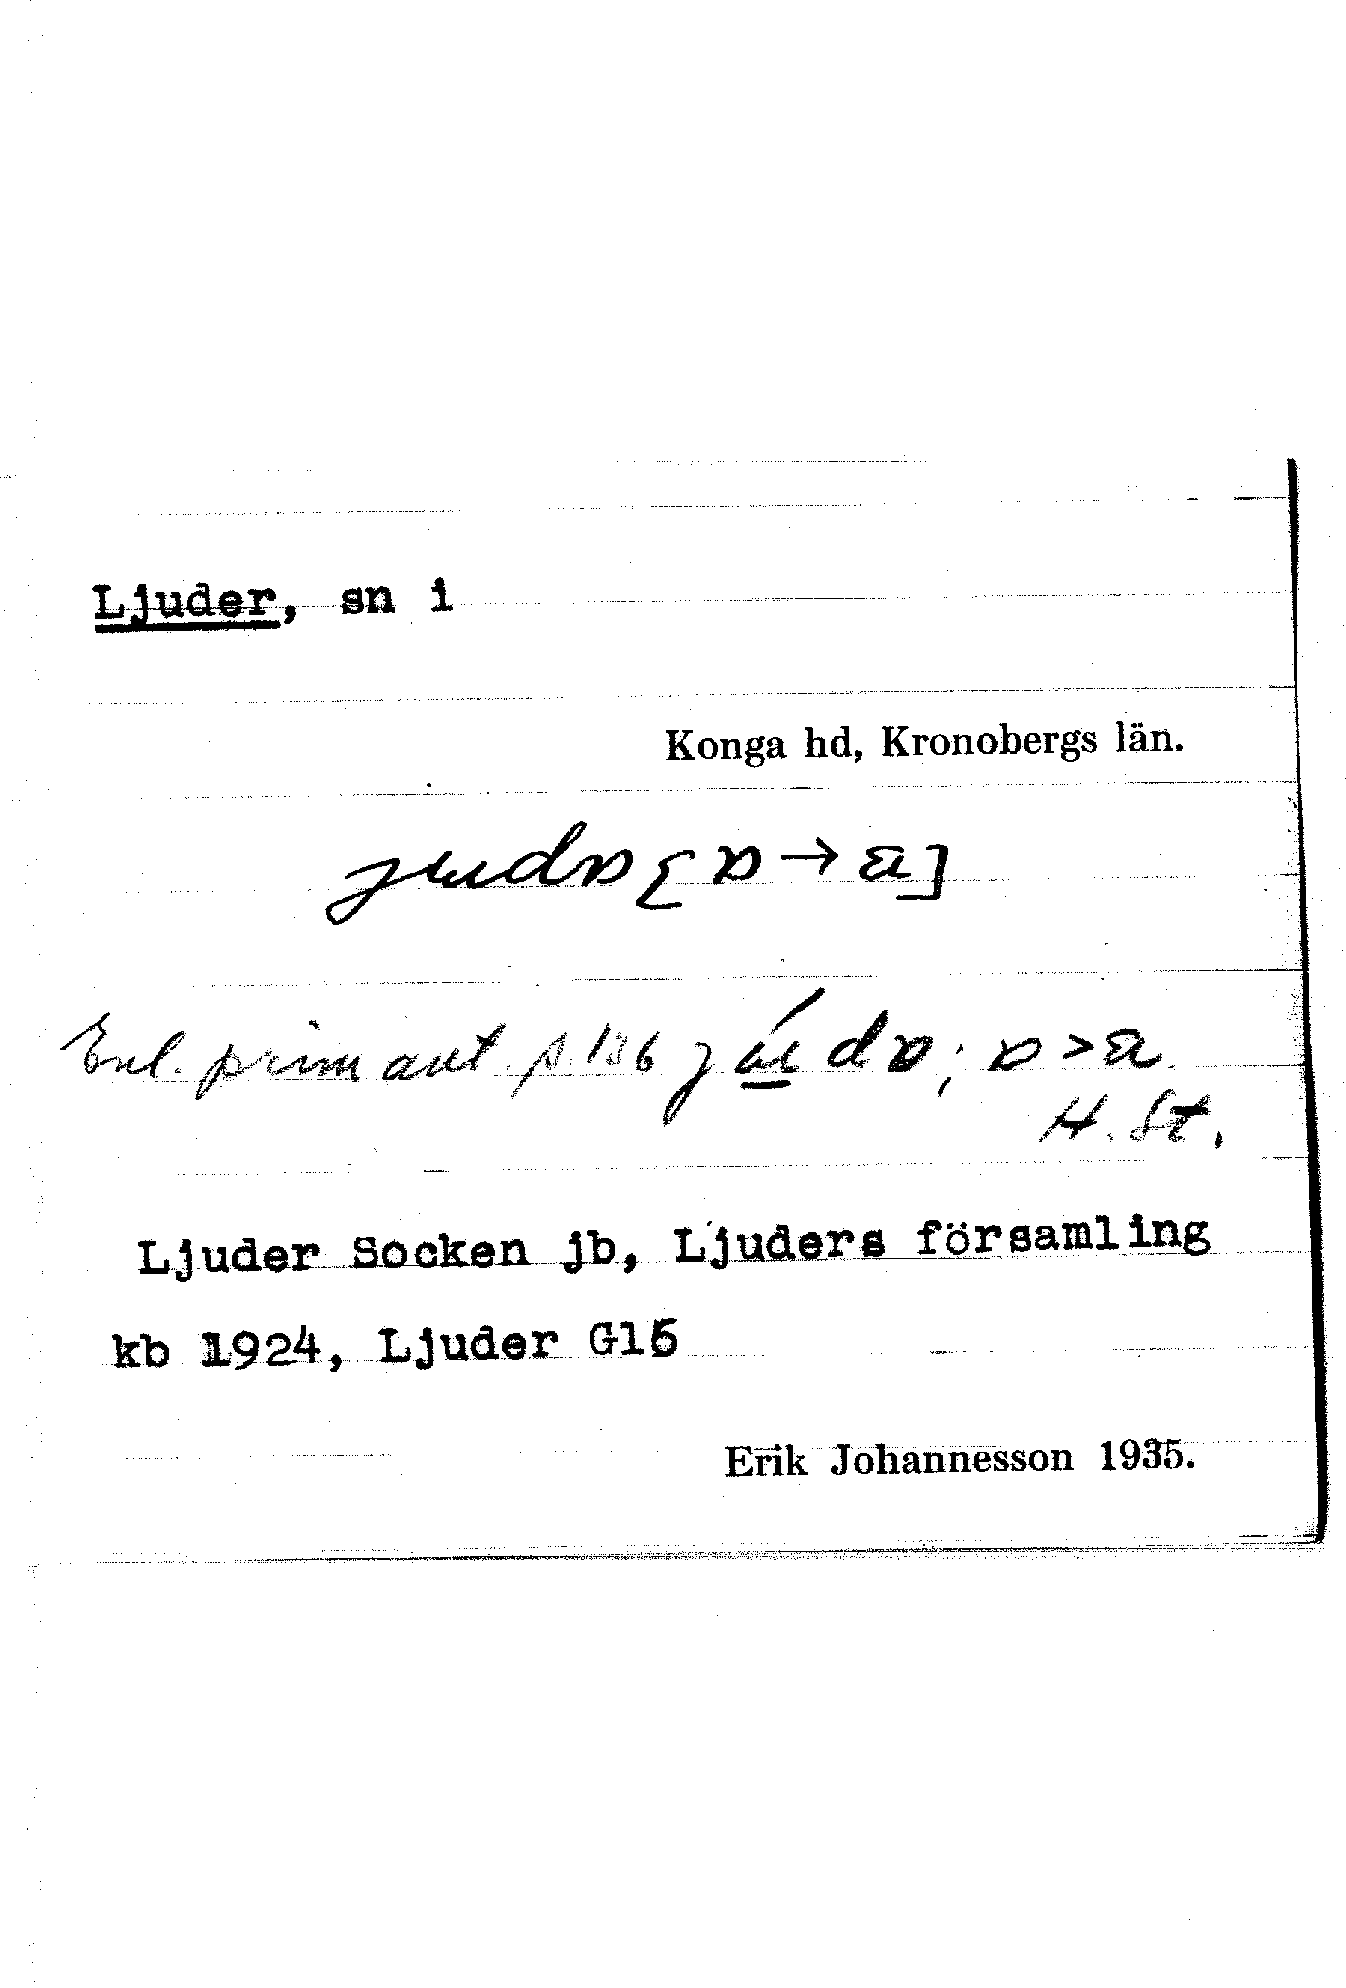 Ljuder, sn i
Konga hd, Kronobergs län.
Enl. prim ant. s. 136
H. St.
Ljuder Socken jb, Ljuders församling
kb 1924, Ljuder G15
Erik Johannesson 1935.